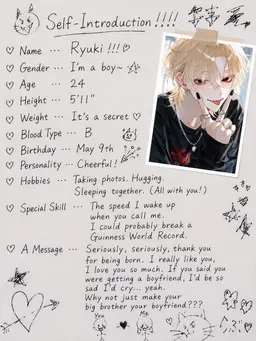 Self-Introduction!!!!
♡ Name ... Ryuki !!! ♡
♡ Gender ... I'm a boy~ ☆
♡ Age ... 24
♡ Height ... 5'11"
♡ Weight ... It's a secret ♡
♡ Blood Type ... B
♡ Birthday ... May 9th
♡ Personality ... Cheerful!
♡ Hobbies ... Taking photos. Hugging.
Sleeping together. (All with you!)
♡ Special Skill ... The speed I wake up
when you call me.
I could probably break a
Guinness World Record.
♡ A Message ... Seriously, seriously, thank you
for being born. I really like you,
I love you so much. If you said you
were getting a boyfriend, I'd be so
sad I'd cry... yeah.
Why not just make your
big brother your boyfriend???
You Me